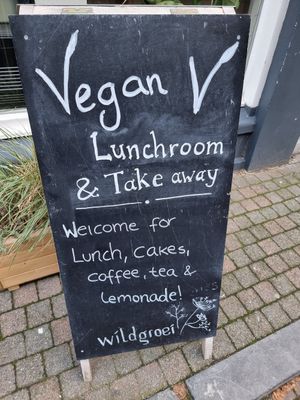 Vegan V
Lunchroom
& Take away
Welcome for
Lunch, cakes,
coffee, tea &
lemonade!
wildgroei